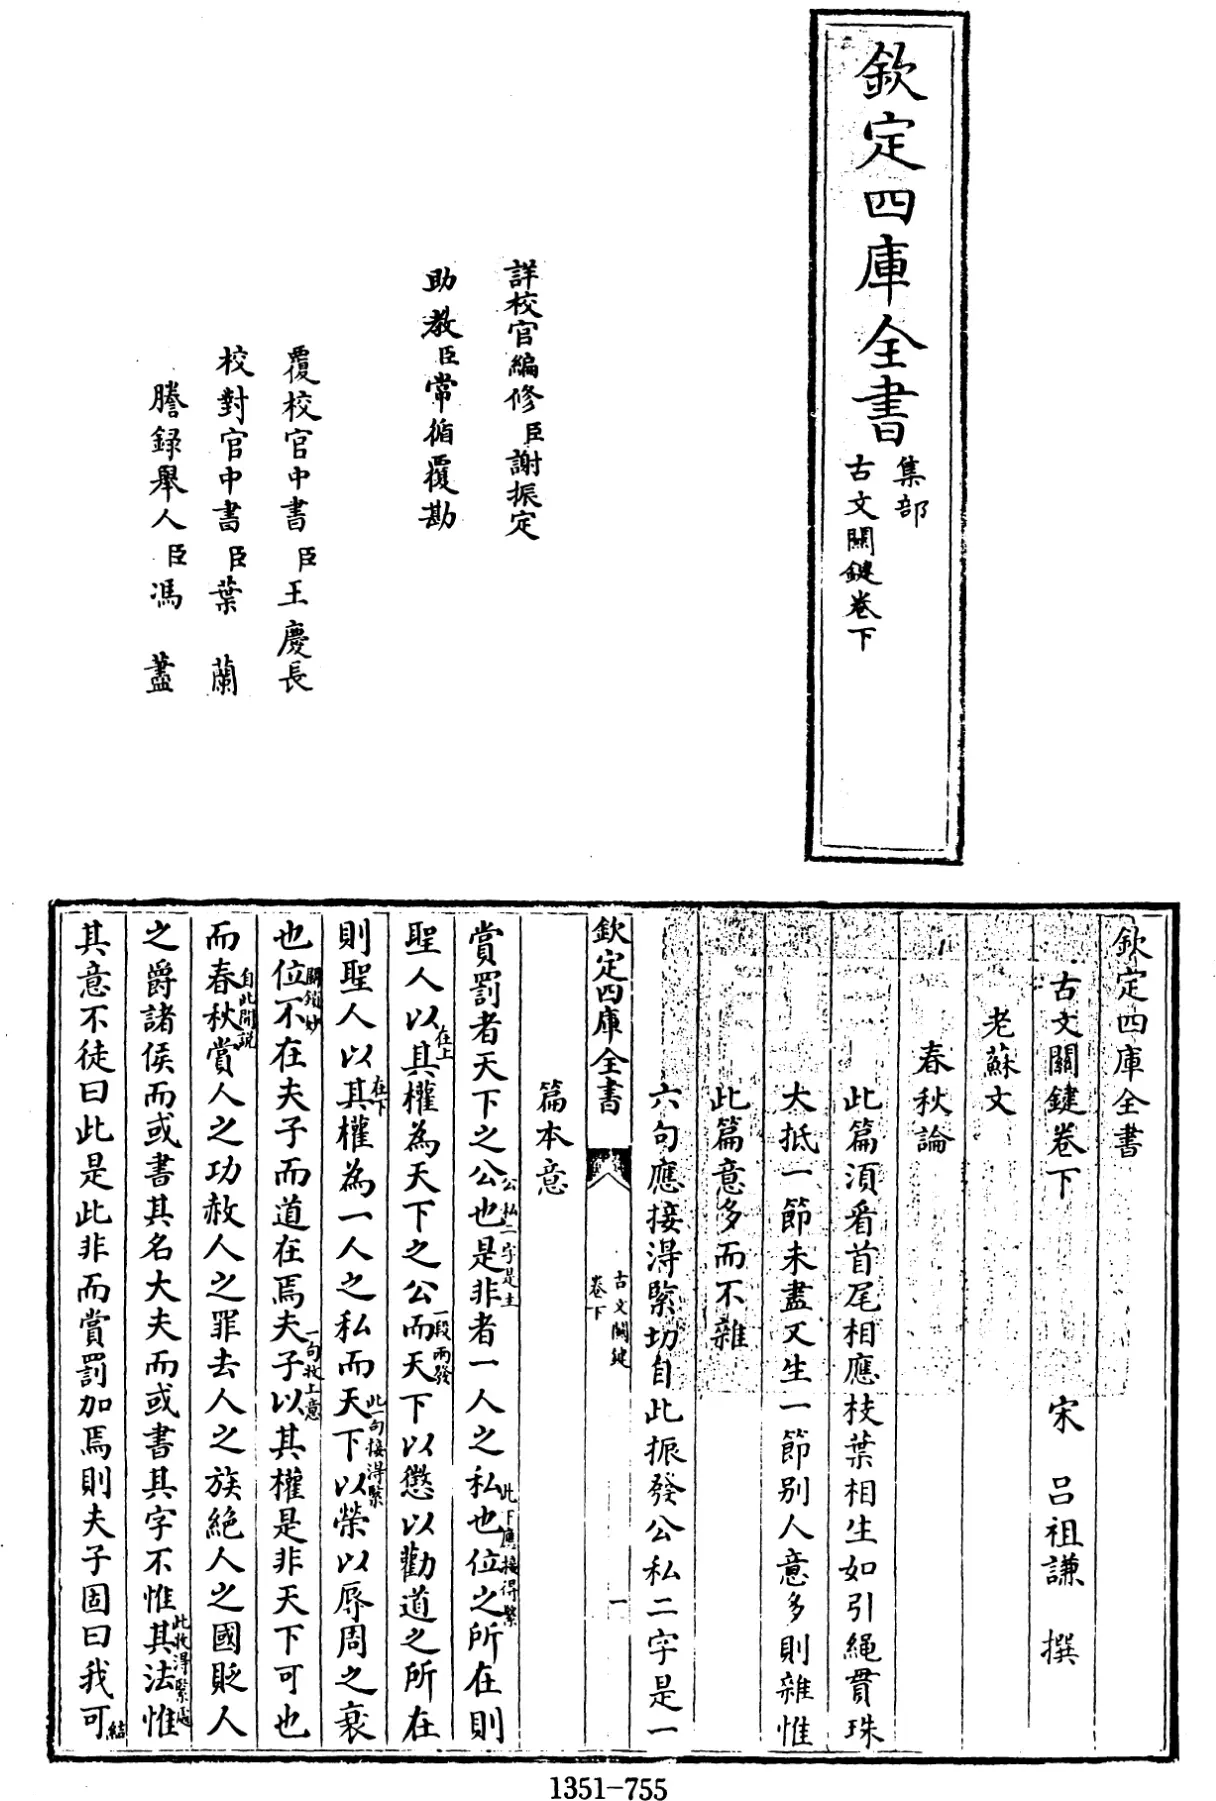 欽定四庫全書
集部
古文關鍵卷下
詳校官編修臣謝振定
助教臣常循覆勘
覆校官中書臣王慶長
校對官中書臣葉蘭
謄録舉人臣馮藎
欽定四庫全書
古文關鍵卷下 宋 呂祖謙 撰
老蘇文
春秋論
此篇湏看首尾相應枝葉相生如引繩貫珠
大抵一節未盡又生一節别人意多則雜惟
此篇意多而不雜
六句應接得緊切自此振發公私二字是一
欽定四庫全書
古文關鍵
卷下
一
篇本意
賞罰者天下之公也是非者一人之私也位之所在則
公私二字是主
此下應接得緊
聖人以其權為天下之公而天下以懲以勸道之所在
在上
一段兩發
則聖人以其權為一人之私而天下以榮以辱周之衰
在下
此一句接得緊
也位不在夫子而道在焉夫子以其權是非天下可也
關鎖妙
一句收上意
而春秋賞人之功赦人之罪去人之族絶人之國貶人
自此間説
之爵諸侯而或書其名大夫而或書其字不惟其法惟
此收得緊處
其意不徒曰此是此非而賞罰加焉則夫子固曰我可
結
1351-755